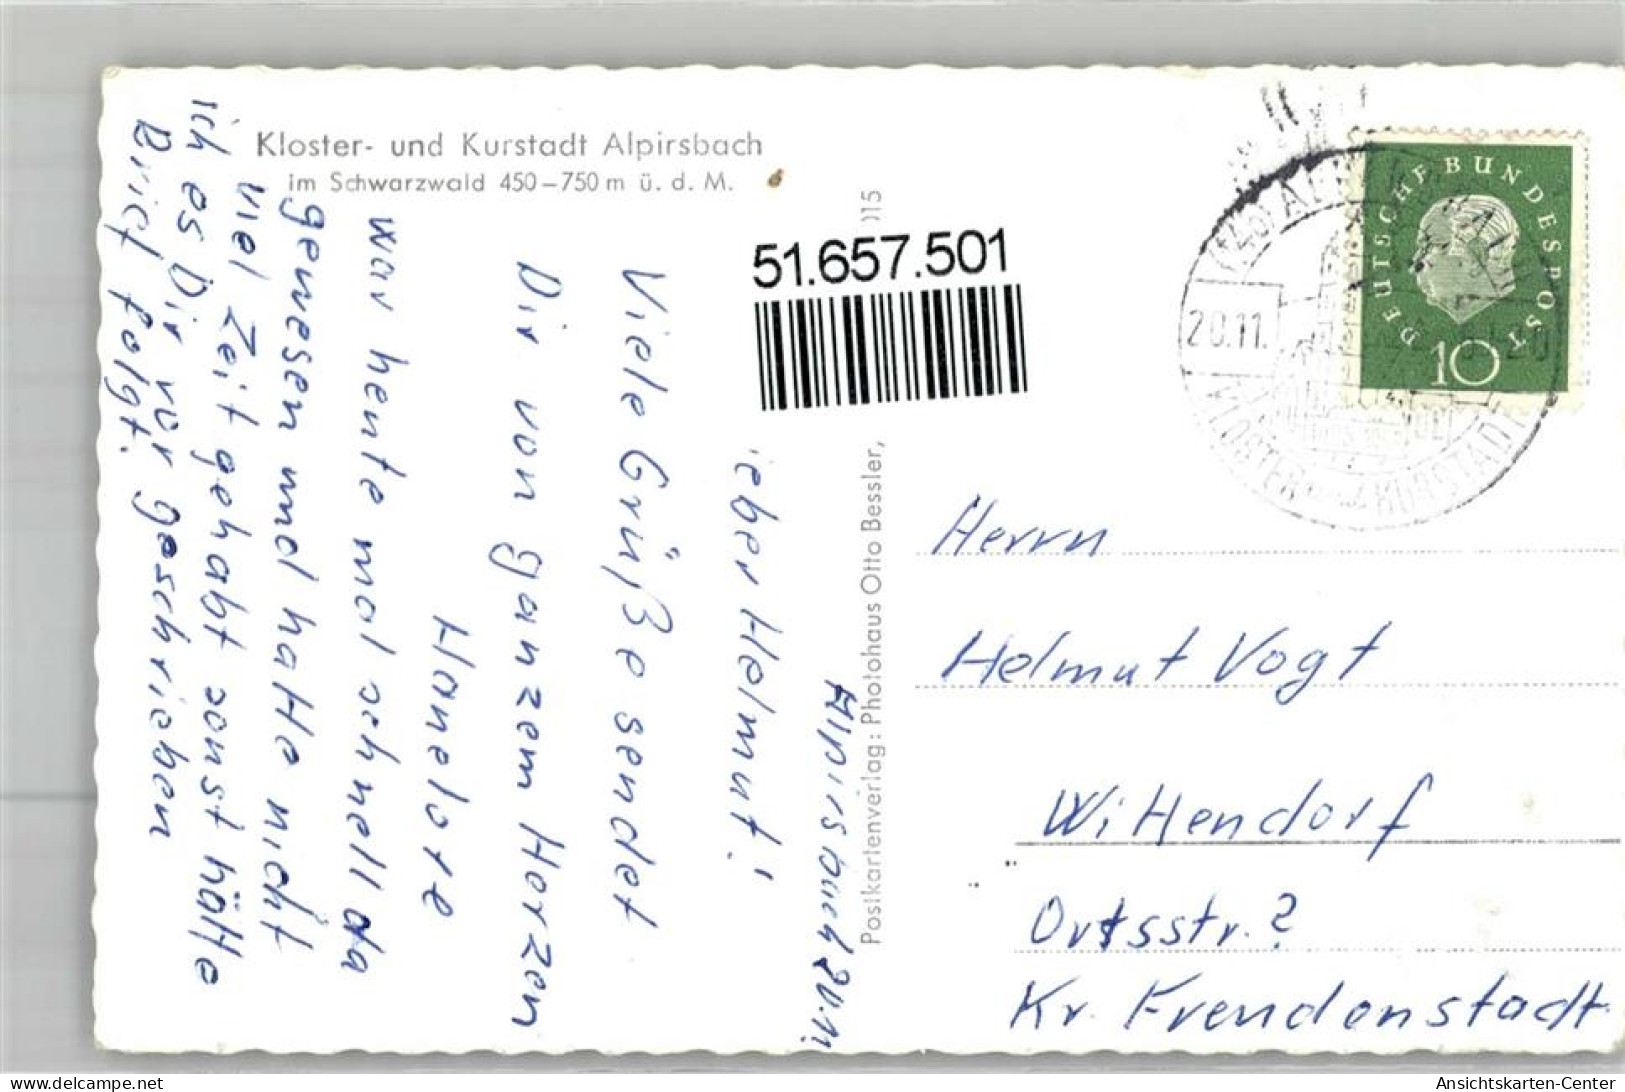 Kloster- und Kurstadt Alpirsbach
im Schwarzwald 450–750 m ü. d. M.
Alpirsbach 20.11
ieber Helmut!
Viele Grüße sendet
Dir von ganzem Herzen
Hanelore
war heute mal schnell da
gewesen und hatte nicht
viel Zeit gehabt sonst hätte
ich es Dir vor geschrieben
Brief folgt.
51.657.501
)15
Postkartenverlag: Photohaus Otto Bessler,
DEUTSCHE BUNDESPOST
10
20.11.
KLOSTER KURSTADT
Herrn
Helmut Vogt
Wittendorf
Ortsstr. ?
Kr. Freudenstadt
delcampe.net
Ansichtskarten-Center